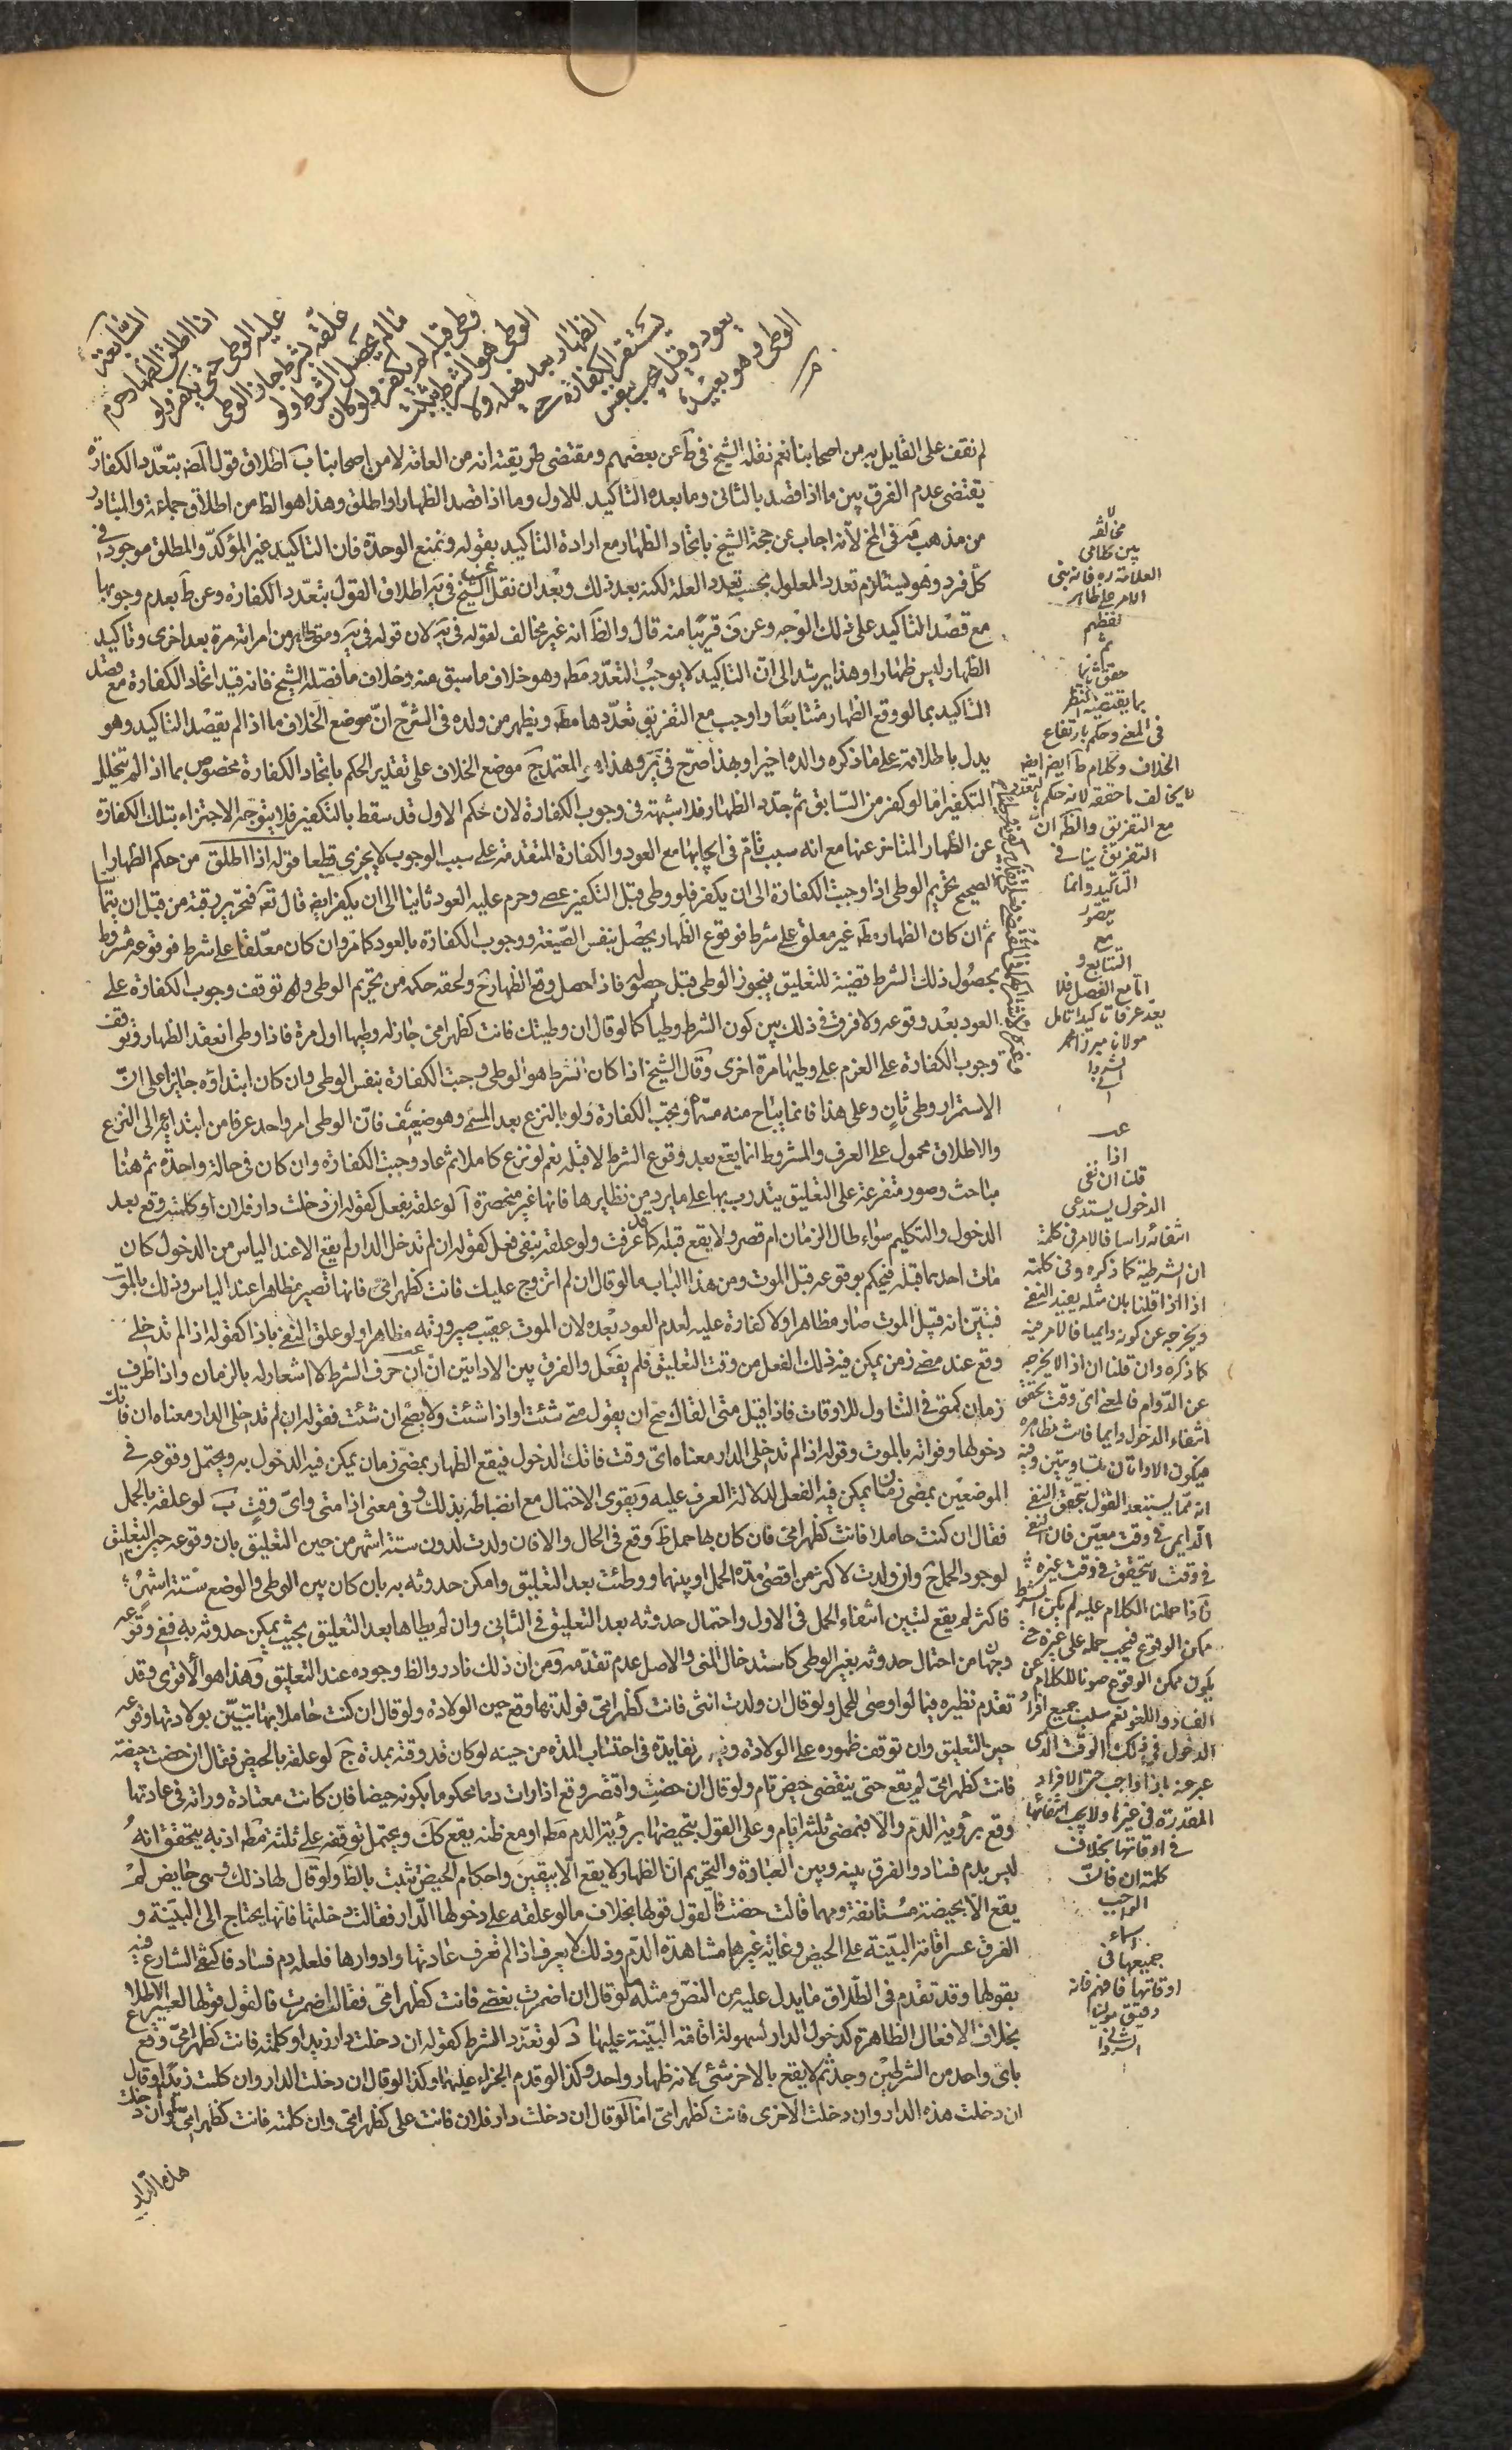 السابعة
اذا اطلق الظهار حرم
عليه الوطى حتى يكفر ولو
علقه بشرط جاز الوطى
ما لم يحصل الشرط ولو
وطى قبله لم يكفر ولو كان
الوطى هو الشرط ثبت
الظهار بعد فعله ولا
يستقر الكفارة حتى
يعود وقيل يجب بنفس
الوطى وهو بعيد
لم نقف على القايل به من اصحابنا نعم نقله الشيخ في ط عن بعضهم ومقتضى طريقته انه من العامة لا من اصحابنا ب اطلاق قول المص بتعدد الكفارة
يقتضى عدم الفرق بين ما اذا قصد بالثانى وما بعده التاكيد للاول وما اذا قصد الظهار او اطلق وهذا هو الظ من اطلاق جماعة والمتبادر
من مذهب في المخ لانه اجاب عن حجة الشيخ باتحاد الظهار مع ارادة التاكيد بقوله ونمنع الوحدة فان التاكيد غير المؤكد والمطلق موجود في
كل فرد وهو يستلزم تعدد المعلول بحسب تعدد العلة لكنه بعد ذلك وبعد ان نقل عن الشيخ في يه اطلاق القول بتعدد الكفارة وعن ط بعدم وجوبها
مع قصد التاكيد على ذلك الوجه وعن ف قريبا منه قال والظ انه غير مخالف لقوله في يه لان قوله في يه ومتى ظاهر من امراته مرة بعد اخرى وتاكيد
الظهار ليس ظهارا وهذا يرشد الى ان التاكيد لا يوجب التعدد مط وهو خلاف ما سبق منه وخلاف ما فصله الشيخ فانه قيد اتحاد الكفارة مع قصد
التاكيد بما لو وقع الظهار متتابعا واوجب مع التفريق تعددها مط ويظهر من ولده في الشرح ان موضع الخلاف ما اذا لم يقصد التاكيد وهو
يدل باطلاقه على ما ذكره والده اخيرا وبهذا صرح في ير وهذا هو المعتمد ج موضع الخلاف على تقدير الحكم باتحاد الكفارة مخصوص بما اذا لم يتخلل
التكفير اما لو كفر من السابق ثم جدد الظهار فلا شبهة في وجوب الكفارة لان حكم الاول قد سقط بالتكفير فلا يتوجه الاجتزاء بتلك الكفارة
عن الظهار المتاخر عنها مع انه سبب تام في ايجابها مع العود والكفارة المتقدمة على سبب الوجوب لا يجزى قطعا قوله اذا اطلق من حكم الظهار
الصحيح تحريم الوطى اذا وجبت الكفارة الى ان يكفر فلو وطى قبل التكفير عصى وحرم عليه العود ثانيا الى ان يكفر ايض قال تعه فتحرير رقبة من قبل ان يتماسا
ثم ان كان الظهار مط غير معلق على شرط فوقوع الظهار يحصل بنفس الصيغة ووجوب الكفارة بالعود كما مر وان كان معلقا على شرط فوقوعه مشروط
بحصول ذلك الشرط قضية للتعليق فيجوز الوطى قبل حصوله فاذا حصل وقع الظهار ح ولحقه حكمه من تحريم الوطى وتوقف وجوب الكفارة على
العود بعد وقوعه ولا فرق في ذلك بين كون الشرط وطيا كما لو قال ان وطيتك فانت كظهر امى جاز له وطيها اول مرة فاذا وطى انعقد الظهار وتوقف
وجوب الكفارة على العزم على وطيها مرة اخرى وقال الشيخ اذا كان الشرط هو الوطى وجبت الكفارة بنفس الوطى وان كان ابتداؤه جايزا على ان
الاستمرار وطى ثان وعلى هذا فانما يباح منه مسماه وتجب الكفارة ولو بالنزع بعد المسمى وهو ضعيف فان الوطى امر واحد عرفا من ابتدائه الى النزع
والاطلاق محمول على العرف والمشروط انما يقع بعد وقوع الشرط لا قبله نعم لو نزع كاملا ثم عاد وجبت الكفارة وان كان في حالة واحدة ثم هنا
مباحث وصور متفرعة على التعليق يتدرب بها على ما يرد من نظايرها فانها غير منحصرة آ لو علقه بفعل كقوله ان دخلت دار فلان او كلمته وقع بعد
الدخول والتكليم سواء طال الزمان ام قصر ولا يقع قبله كما قد عرفت ولو علقه بنفى فعل كقوله ان لم تدخل الدار لم يقع الا عند الياس من الدخول كان
مات احدهما قبله فيحكم بوقوعه قبل الموت ومن هذا الباب ما لو قال ان لم اتزوج عليك فانت كظهر امى فانها تصير مظاهرا عند الياس وذلك بالموت
فتبين انه قبيل الموت صار مظاهرا ولا كفارة عليه لعدم العود بعده لان الموت عقيب صيرورته مظاهرا ولو علق النفى باذا كقوله اذا لم تدخلى
وقع عند مضى زمن يمكن فيه ذلك الفعل من وقت التعليق فلم يفعل والفرق بين الاداتين ان ان حرف الشرط لا اشعار له بالزمان واذا ظرف
زمان كمتى في التناول للاوقات فاذا قيل متى القاك صح ان يقول متى شئت او اذا شئت ولا يصح ان شئت فقوله ان لم تدخلى الدار معناه ان فاتك
دخولها وفواته بالموت وقوله اذا لم تدخلى الدار معناه اى وقت فاتك الدخول فيقع الظهار بمضى زمان يمكن فيه الدخول به ويحتمل وقوعه في
الموضعين بمضى زمان يمكن فيه الفعل لدلالة العرف عليه ويقوى الاحتمال مع انضباطه بذلك وفي معنى اذا متى واى وقت ب لو علقه بالحمل
فقال ان كنت حاملا فانت كظهر امى فان كان بها حمل ظ وقع في الحال والا فان ولدت لدون ستة اشهر من حين التعليق بان وقوعه حين التعليق
لوجود الحمل ح وان ولدت لاكثر من اقصى مدة الحمل او بينهما ووطئت بعد التعليق وامكن حدوثه به بان كان بين الوطى والوضع ستة اشهر
فاكثر لم يقع لتبين انتفاء الحمل في الاول واحتمال حدوثه بعد التعليق في الثانى وان لم يطاها بعد التعليق بحيث يمكن حدوثه به ففى وقوعه
وجهان من احتمال حدوثه بغير الوطى كاستدخال المنى والاصل عدم تقدمه ومن ان ذلك نادر والظ وجوده عند التعليق وهذا هو الاقوى وقد
تقدم نظيره فيما لو اوصى للحمل ولو قال ان ولدت انثى فانت كظهر امى فولدتها وقع حين الولادة ولو قال ان كنت حاملا بها تبين بولادتها وقوعه
حين التعليق وان توقف ظهوره على الولادة وفايدته في احتساب المدة من حينه لو كان قد وقته بمدة ج لو علقه بالحيض فقال ان حضت حيضة
فانت كظهر امى لم يقع حتى ينقضى حيض تام ولو قال ان حضت واقتصر وقع اذا رات دما محكوما بكونه حيضا فان كانت معتادة وراته في عادتها
وقع برؤية الدم والا فبمضى ثلثة ايام وعلى القول بتحيضها برؤية الدم مط او مع ظنه يقع كك ويحتمل توقفه على ثلثة مط اذ به يتحقق انه
ليس بدم فساد والفرق بينه وبين العبادة والتحريم ان الظهار لا يقع الا بيقين واحكام الحيض تثبت بالظ ولو قال لها ذلك وهى حايض لم
يقع الا بحيضة مستانفة ومهما قالت حضت فالقول قولها بخلاف ما لو علقه على دخولها الدار فقالت دخلتها فانها يحتاج الى البينة و
الفرق عسر اقامة البينة على الحيض وغاية غيرها مشاهدة الدم وذلك لا يعرف اذا لم تعرف عادتها وادوارها فلعله دم فساد فاكتفى الشارع فيه
بقولها وقد تقدم في الطلاق ما يدل عليه من النص ومثله لو قال ان اضمرت بغضى فانت كظهر امى فقالت اضمرت فالقول قولها لعسر الاطلاع
بخلاف الافعال الظاهرة كدخول الدار لسهولة اقامة البينة عليها د لو تعدد الشرط كقوله ان دخلت دار زيد او كلمته فانت كظهر امى وقع
باى واحد من الشرطين وجد ثم لا يقع بالاخر شئ لانه ظهار واحد وكذا لو قدم الجزاء عليها وكذا لو قال ان دخلت الدار وان كلمت زيدا او قال
ان دخلت هذه الدار وان دخلت الاخرى فانت كظهر امى اما لو قال ان دخلت دار فلان فانت على كظهر امى وان كلمته فانت كظهر امى او ان دخلت
هذه الدار
لا مخالفة
بين كلامى
العلامة ره فانه بنى
الامر على ظاهر
لفظهم
ثم
حقق ثانيا
بما يقتضيه النظر
في المعنى وحكم بارتفاع
الخلاف وكلام ط ايض
لا يخالف ما حققه لانه حكم بالتعدد
مع التفريق والظ ان
التفريق ينافى
التاكيد وانما
يتصور
مع
التتابع و
اما مع الفصل فلا
يعد عرفا تاكيدا تامل
مولانا ميرزا
اذا
قلنا ان نفى
الدخول يستدعى
انتفائه راسا فالامر في كلمة
ان الشرطية كما ذكره وفى كلمة
اذا اذا قلنا بان مثله يفيد النفى
ويخرجه عن كونه دايميا فالامر فيه
كما ذكره وان قلنا ان اذا لا يخرجه
عن الدوام فالمعنى اى وقت تحقق
انتفاء الدخول دايما فانت مظاهرة
فيكون الاداتان متساويتين وفيه
انه مما يستبعد القول بتحقق النفى
الدايمى في وقت معين فان النفى
في وقت لا يتحقق في وقت غيره
فاذا حملنا الكلام عليه لم يكن الشرط
ممكن الوقوع فيجب حمله على غيره حتى
يكون ممكن الوقوع صونا للكلام عن
الفساد واللغو نعم سلب جميع افراد
الدخول في ذلك الوقت الذى
عبر عنه باذا واجب حتى الافراد
المقدرة في غيرها ولا يجب انتفائها
في اوقاتها بخلاف
كلمة ان فان
الواجب
انتفاء
جميعها في
اوقاتها فافهم فانه
دقيق مولينا